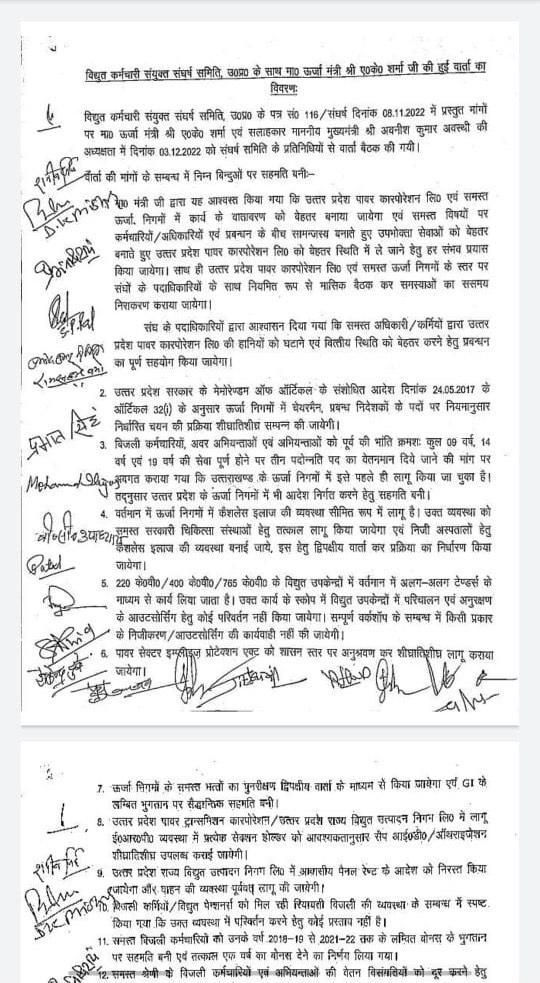 विद्युत कर्मचारी संयुक्त संघर्ष समिति, उ0प्र0 के साथ मा0 ऊर्जा मंत्री श्री ए0के0 शर्मा जी की हुई वार्ता का
विवरणः
विद्युत कर्मचारी संयुक्त संघर्ष समिति, उ0प्र0 के पत्र सं0 116/संघर्ष दिनांक 08.11.2022 में प्रस्तुत मांगों
पर मा0 ऊर्जा मंत्री श्री ए0के0 शर्मा एवं सलाहकार माननीय मुख्यमंत्री श्री अवनीश कुमार अवस्थी की
अध्यक्षता में दिनांक 03.12.2022 को संघर्ष समिति के प्रतिनिधियों से वार्ता बैठक की गयी।
वार्ता की मांगों के सम्बन्ध में निम्न बिन्दुओं पर सहमति बनीः–
मा0 मंत्री जी द्वारा यह आश्वस्त किया गया कि उत्तर प्रदेश पावर कारपोरेशन लि0 एवं समस्त
ऊर्जा निगमों में कार्य के वातावरण को बेहतर बनाया जायेगा एवं समस्त विषयों पर
कर्मचारियों/अधिकारियों एवं प्रबन्धन के बीच सामन्जस्य बनाते हुए उपभोक्ता सेवाओं को बेहतर
बनाते हुए उत्तर प्रदेश पावर कारपोरेशन लि0 को बेहतर स्थिति में ले जाने हेतु हर संभव प्रयास
किया जायेगा। साथ ही उत्तर प्रदेश पावर कारपोरेशन लि0 एवं समस्त ऊर्जा निगमों के स्तर पर
संघों के पदाधिकारियों के साथ नियमित रूप से मासिक बैठक कर समस्याओं का ससमय
निराकरण कराया जायेगा।
संघ के पदाधिकारियों द्वारा आश्वासन दिया गया कि समस्त अधिकारी/कर्मियों द्वारा उत्तर
प्रदेश पावर कारपोरेशन लि0 की हानियों को घटाने एवं वित्तीय स्थिति को बेहतर करने हेतु प्रबन्धन
का पूर्ण सहयोग किया जायेगा।
2. उत्तर प्रदेश सरकार के मेमोरेण्डम ऑफ ऑर्टिकल के संशोधित आदेश दिनांक 24.05.2017 के
ऑर्टिकल 32(i) के अनुसार ऊर्जा निगमों में चेयरमैन, प्रबन्ध निदेशकों के पदों पर नियमानुसार
निर्धारित चयन की प्रक्रिया शीघ्रातिशीघ्र सम्पन्न की जायेगी।
3. बिजली कर्मचारियों, अवर अभियन्ताओं एवं अभियन्ताओं को पूर्व की भांति क्रमशः कुल 09 वर्ष, 14
वर्ष एवं 19 वर्ष की सेवा पूर्ण होने पर तीन पदोन्नति पद का वेतनमान दिये जाने की मांग पर
अवगत कराया गया कि उत्तराखण्ड के ऊर्जा निगमों में इसे पहले ही लागू किया जा चुका है।
तद्नुसार उत्तर प्रदेश के ऊर्जा निगमों में भी आदेश निर्गत करने हेतु सहमति बनी।
4. वर्तमान में ऊर्जा निगमों में कैशलेस इलाज की व्यवस्था सीमित रूप में लागू है। उक्त व्यवस्था को
समस्त सरकारी चिकित्सा संस्थाओं हेतु तत्काल लागू किया जायेगा एवं निजी अस्पतालों हेतु
कैशलेस इलाज की व्यवस्था बनाई जाये, इस हेतु द्विपक्षीय वार्ता कर प्रक्रिया का निर्धारण किया
जायेगा।
5. 220 के0वी0/400 के0वी0/765 के0वी0 के विद्युत उपकेन्द्रों में वर्तमान में अलग-अलग टेण्डर्स के
माध्यम से कार्य लिया जाता है। उक्त कार्य के स्कोप में विद्युत उपकेन्द्रों में परिचालन एवं अनुरक्षण
के आउटसोर्सिंग हेतु कोई परिवर्तन नहीं किया जायेगा। सम्पूर्ण वर्कशॉप के सम्बन्ध में किसी प्रकार
के निजीकरण/आउटसोर्सिंग की कार्यवाही नहीं की जायेगी।
6. पावर सेक्टर इम्प्लाइज प्रोटेक्शन एक्ट को शासन स्तर पर अनुश्रवण कर शीघ्रातिशीघ्र लागू कराया
जायेगा।
7. ऊर्जा निगमों के समस्त भत्तों का पुनरीक्षण द्विपक्षीय वार्ता के माध्यम से किया जायेगा एवं GI के
लम्बित भुगतान पर सैद्धान्तिक सहमति बनी।
8. उत्तर प्रदेश पावर ट्रान्समिशन कारपोरेशन/उत्तर प्रदेश राज्य विद्युत उत्पादन निगम लि0 में लागू
ई0आर0पी0 व्यवस्था में प्रत्येक सेक्शन होल्डर को आवश्यकतानुसार सैप आई0डी0/ऑथराइजेशन
शीघ्रातिशीघ्र उपलब्ध कराई जायेगी।
9. उत्तर प्रदेश राज्य विद्युत उत्पादन निगम लि0 में आवासीय पैनल रेण्ट के आदेश को निरस्त किया
जायेगा और वाहन की व्यवस्था पूर्ववत् लागू की जायेगी।
10. बिजली कर्मियों/विद्युत पेन्शनर्स को मिल रही रियायती बिजली की व्यवस्था के सम्बन्ध में स्पष्ट
किया गया कि उक्त व्यवस्था में परिवर्तन करने हेतु कोई प्रस्ताव नहीं है।
11. समस्त बिजली कर्मचारियों को उनके वर्ष 2018-19 से 2021-22 तक के लम्बित बोनस के भुगतान
पर सहमति बनी एवं तत्काल एक वर्ष का बोनस देने का निर्णय लिया गया।
12. समस्त श्रेणी के बिजली कर्मचारियों एवं अभियन्ताओं की वेतन विसंगतियों को दूर करने हेतु